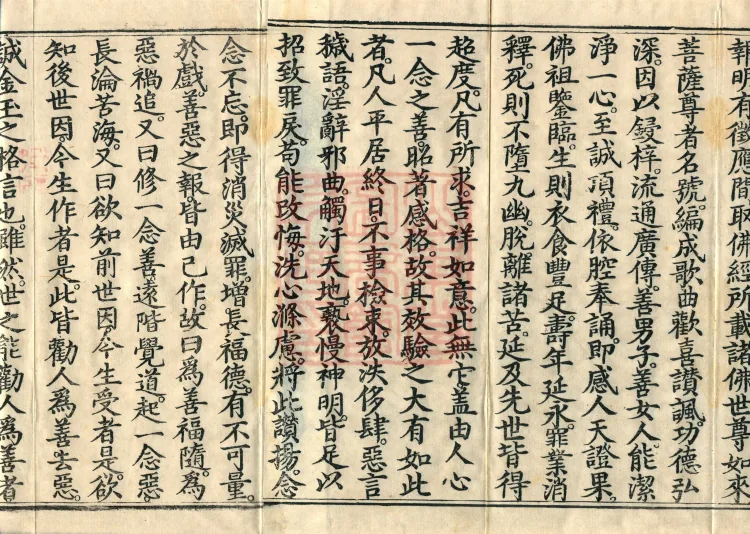 報明有徵應間取佛經所載諸佛世尊如來
菩薩尊者名號。編成歌曲歡喜讚諷。功德弘
深。因以鋟梓。流通廣傳。善男子。善女人。能潔
淨一心。至誠頂禮。依腔奉誦。即感人天證果。
佛祖鑒臨。生則衣食豐足。壽年延永。罪業消
釋。死則不墮九幽。脫離諸苦。延及先世。皆得
超度。凡有所求。吉祥如意。此無它。盖由人心
一念之善。昭著感格。故其效驗之大有如此
者。凡人平居終日。不事檢束。放泆侈肆。惡言
穢語。淫辭邪曲。觸汙天地。褻慢神明。皆足以
招致罪戾。苟能改悔。洗心滌慮。將此讚揚。念
念不忘。即得消災滅罪。增長福德。有不可量。
於戲善惡之報。皆由己作。故曰為善福隨。為
惡禍追。又曰修一念善。遠階覺道。起一念惡。
長淪苦海。又曰欲知前世因。今生受者是。欲
知後世因。今生作者是。此皆勸人為善去惡。
誠金玉之格言也。雖然。世之能勸人為善者